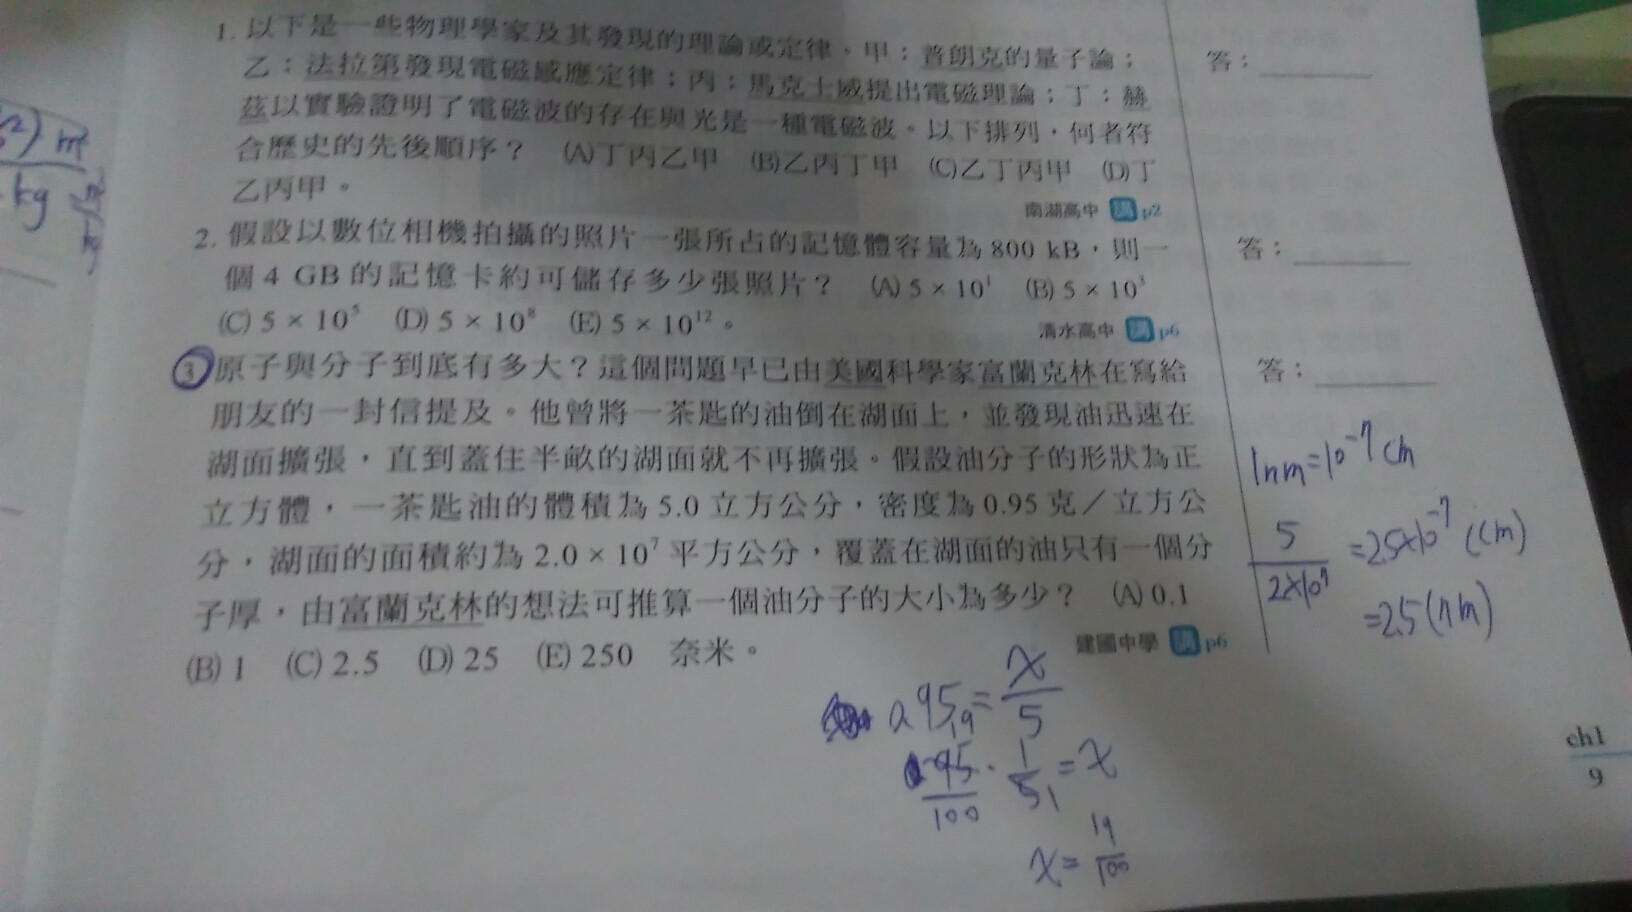 1. 以下是一些物理學家及其發現的理論或定律。甲：普朗克的量子論；
乙：法拉第發現電磁感應定律；丙：馬克士威提出電磁理論；丁：赫
茲以實驗證明了電磁波的存在與光是一種電磁波。以下排列，何者符
合歷史的先後順序？ (A)丁丙乙甲 (B)乙丙丁甲 (C)乙丁丙甲 (D)丁
乙丙甲。
南湖高中 講 p2
答：
2. 假設以數位相機拍攝的照片一張所占的記憶體容量為 800 kB，則一
個 4 GB 的記憶卡約可儲存多少張照片？ (A) 5 × 10¹ (B) 5 × 10³
(C) 5 × 10⁵ (D) 5 × 10⁸ (E) 5 × 10¹²。
清水高中 講 p6
答：
3. 原子與分子到底有多大？這個問題早已由美國科學家富蘭克林在寫給
朋友的一封信提及。他曾將一茶匙的油倒在湖面上，並發現油迅速在
湖面擴張，直到蓋住半畝的湖面就不再擴張。假設油分子的形狀為正
立方體，一茶匙油的體積為 5.0 立方公分，密度為 0.95 克／立方公
分，湖面的面積約為 2.0 × 10⁷ 平方公分，覆蓋在湖面的油只有一個分
子厚，由富蘭克林的想法可推算一個油分子的大小為多少？ (A) 0.1
(B) 1 (C) 2.5 (D) 25 (E) 250 奈米。
建國中學 講 p6
答：
1nm=10⁻⁷cm
5
2×10⁷
=2.5×10⁻⁷(cm)
=2.5(nm)
0.95=x/5
95/100 · 1/5=x
19
1
x=19/100
m
kg
ch1
9